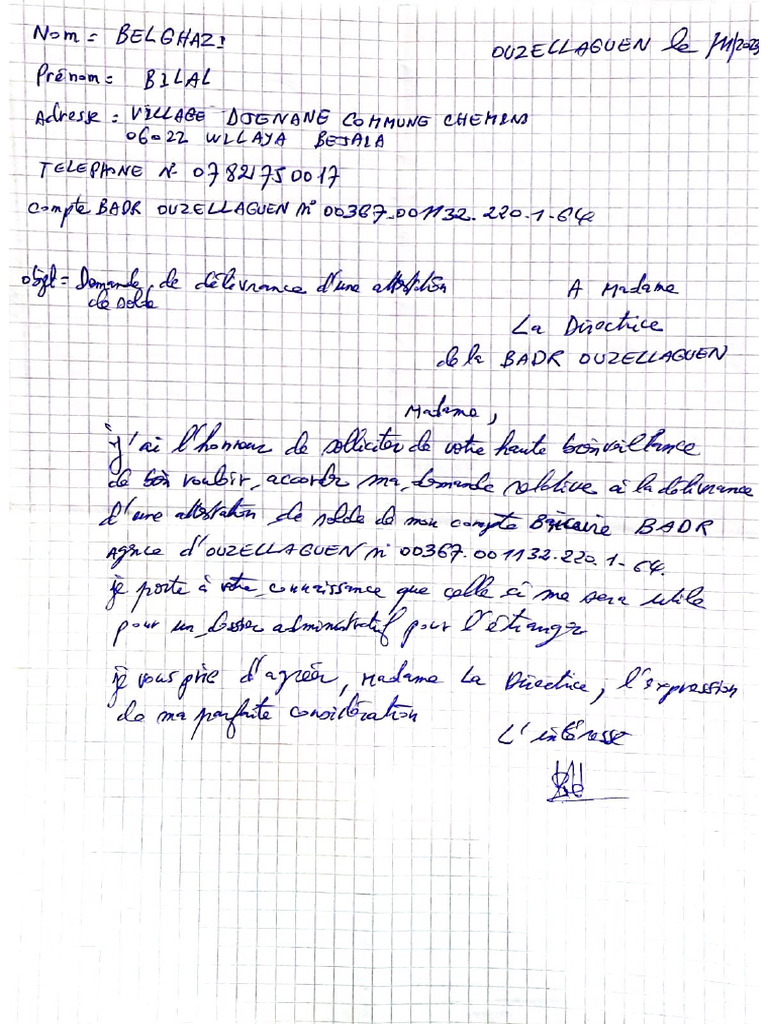 Nom = BELGHAZI
OUZELLAGUEN le
Prénom = BILAL
Adresse : VILLAGE DJENANE COMMUNE CHEMINI
06022 WILLAYA BEJAIA
TELEPHONE N° 0782175 0017
compte BADR OUZELLAGUEN N° 00367.001132.220.1-64
objet = Demande de délivrance d'une attestation
de solde
A Madame
La Directrice
de la BADR OUZELLAGUEN
Madame,
j'ai l'honneur de solliciter de votre haute bienveillance
de bien vouloir accorder ma demande relative à la délivrance
d'une attestation de solde de mon compte BADR
agence d'OUZELLAGUEN N° 00367.001132.220.1-64.
je porte à votre connaissance que celle ci me sera utile
pour un dossier administratif pour l'étranger
je vous prie d'agréer, Madame La Directrice, l'expression
de ma parfaite considération
L'intéressé